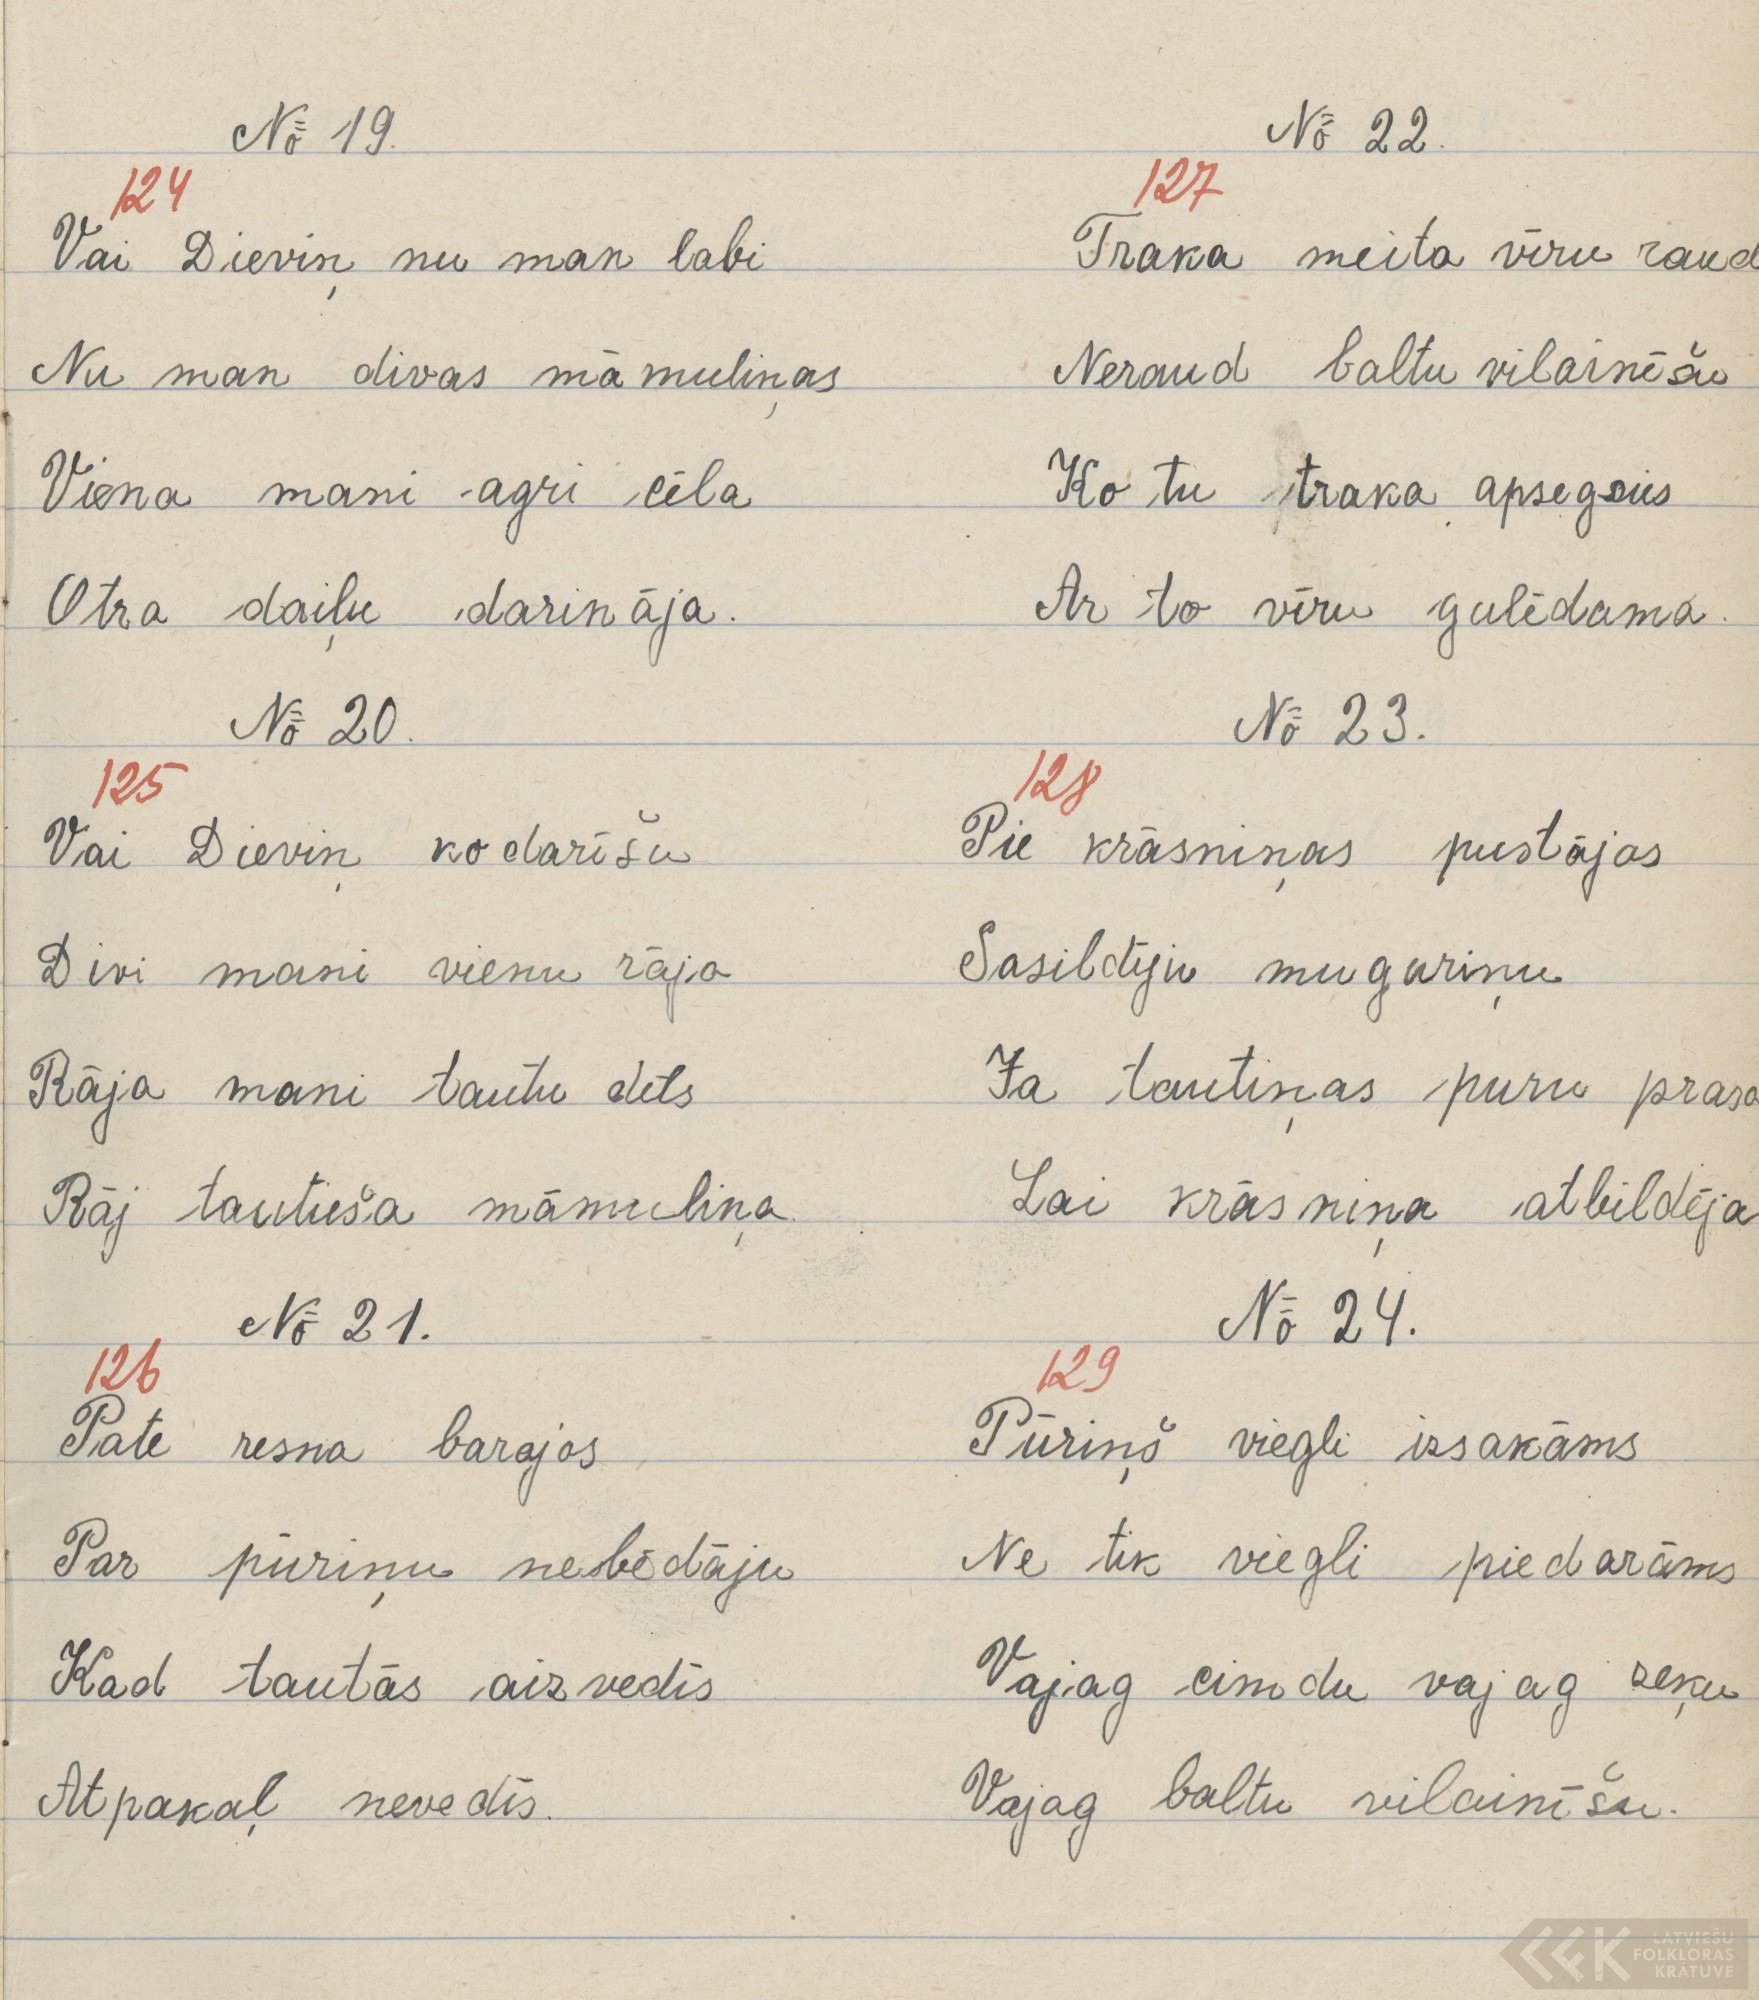 № 19.
124
Vai Dieviņ nu man labi
Nu man divas māmuliņas
Viena mani agri cēla
Otra daiļu darināja.
№ 20.
125
Vai Dieviņ ko darīšu
Divi mani vienu rāja
Rāja mani tautu dēls
Rāj tautieša māmuliņa
№ 21.
126
Pate resna barojos
Par pūriņu nebēdāju
Kad tautās aizvedīs
Atpakaļ nevedīs.
№ 22.
127
Traka meita vīru raud
Neraud baltu vilainīšu
Ko tu traka apsegsies
Ar to vīru gulēdama.
№ 23.
128
Pie krāsniņas pustājos
Sasildīju muguriņu
Ja tautiņas puru prasa
Lai krāsniņa atbildēja
№ 24.
129
Pūriņš viegli izsakāms
Ne tik viegli piedarāms
Vajag cimdu vajag zeķu
Vajag baltu vilainīšu.
LATVIEŠU
FOLKLORAS
KRĀTUVE